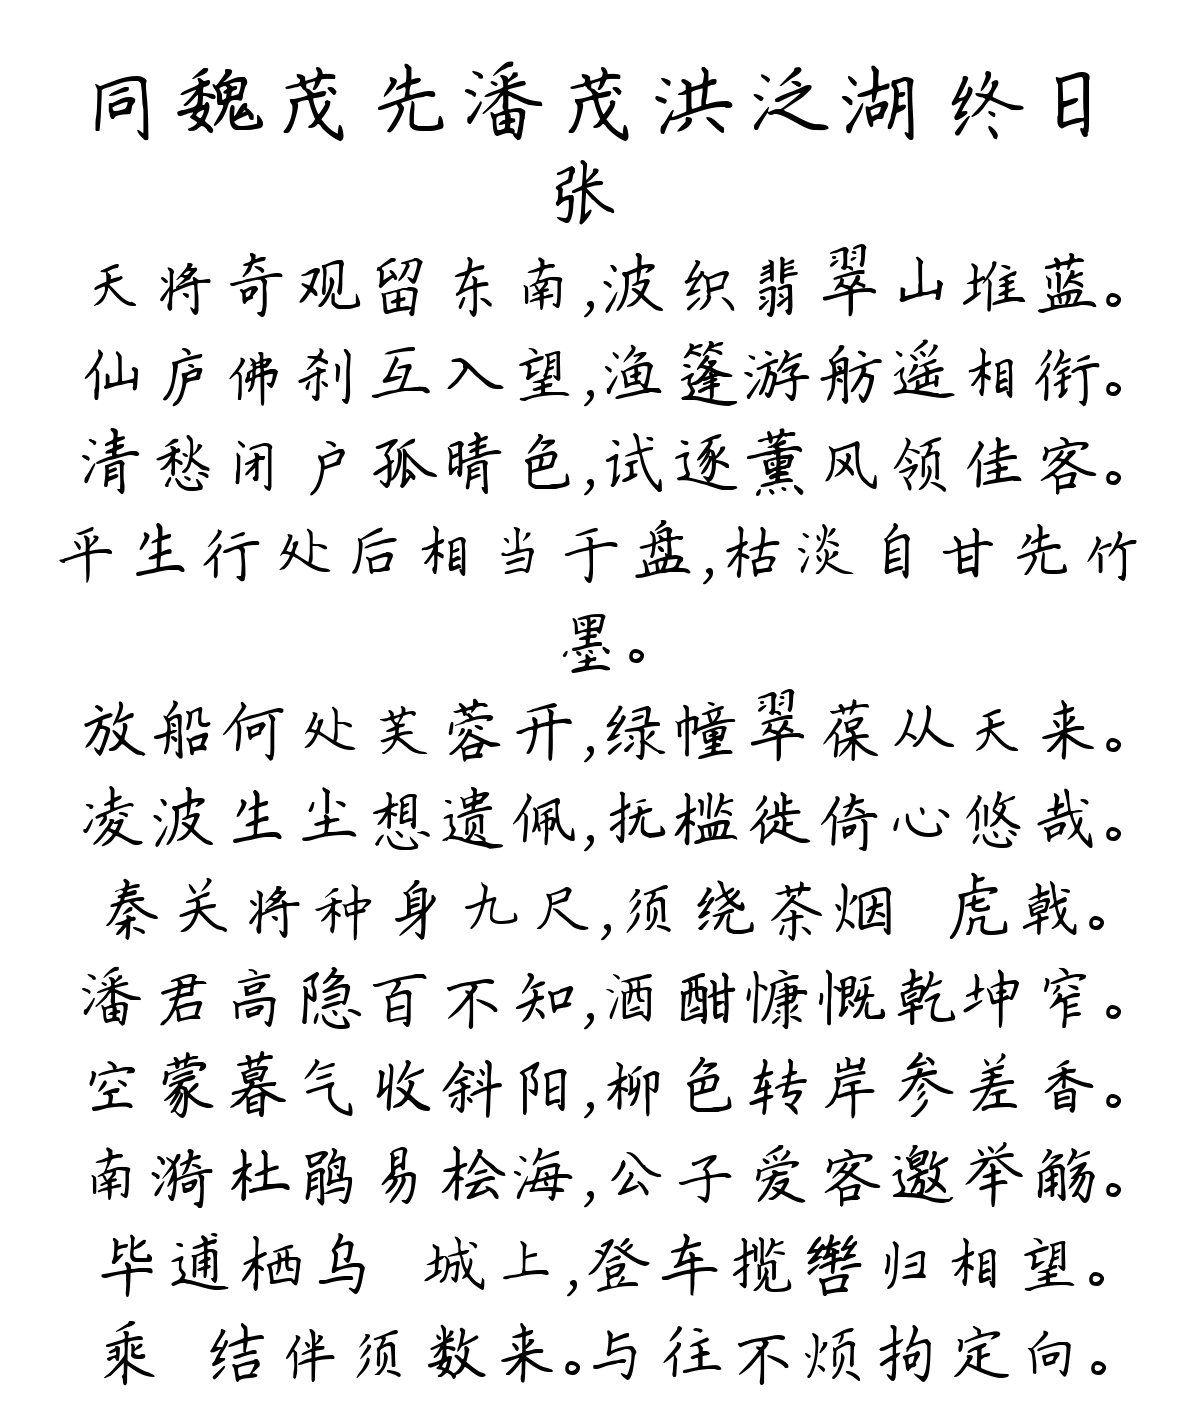 同魏茂先潘茂洪泛湖终日
张
天将奇观留东南,波织翡翠山堆蓝。
仙庐佛刹互入望,渔篷游舫遥相衔。
清愁闭户孤晴色,试逐薰风领佳客。
平生行处后相当于盘,枯淡自甘先竹
墨。
放船何处芙蓉开,绿幢翠葆从天来。
凌波生尘想遗佩,抚槛徙倚心悠哉。
秦关将种身九尺,须绕茶烟 虎戟。
潘君高隐百不知,酒酣慷慨乾坤窄。
空蒙暮气收斜阳,柳色转岸参差香。
南漪杜鹃易桧海,公子爱客邀举觞。
毕逋栖乌 城上,登车揽辔归相望。
乘 结伴须数来。与往不烦拘定向。